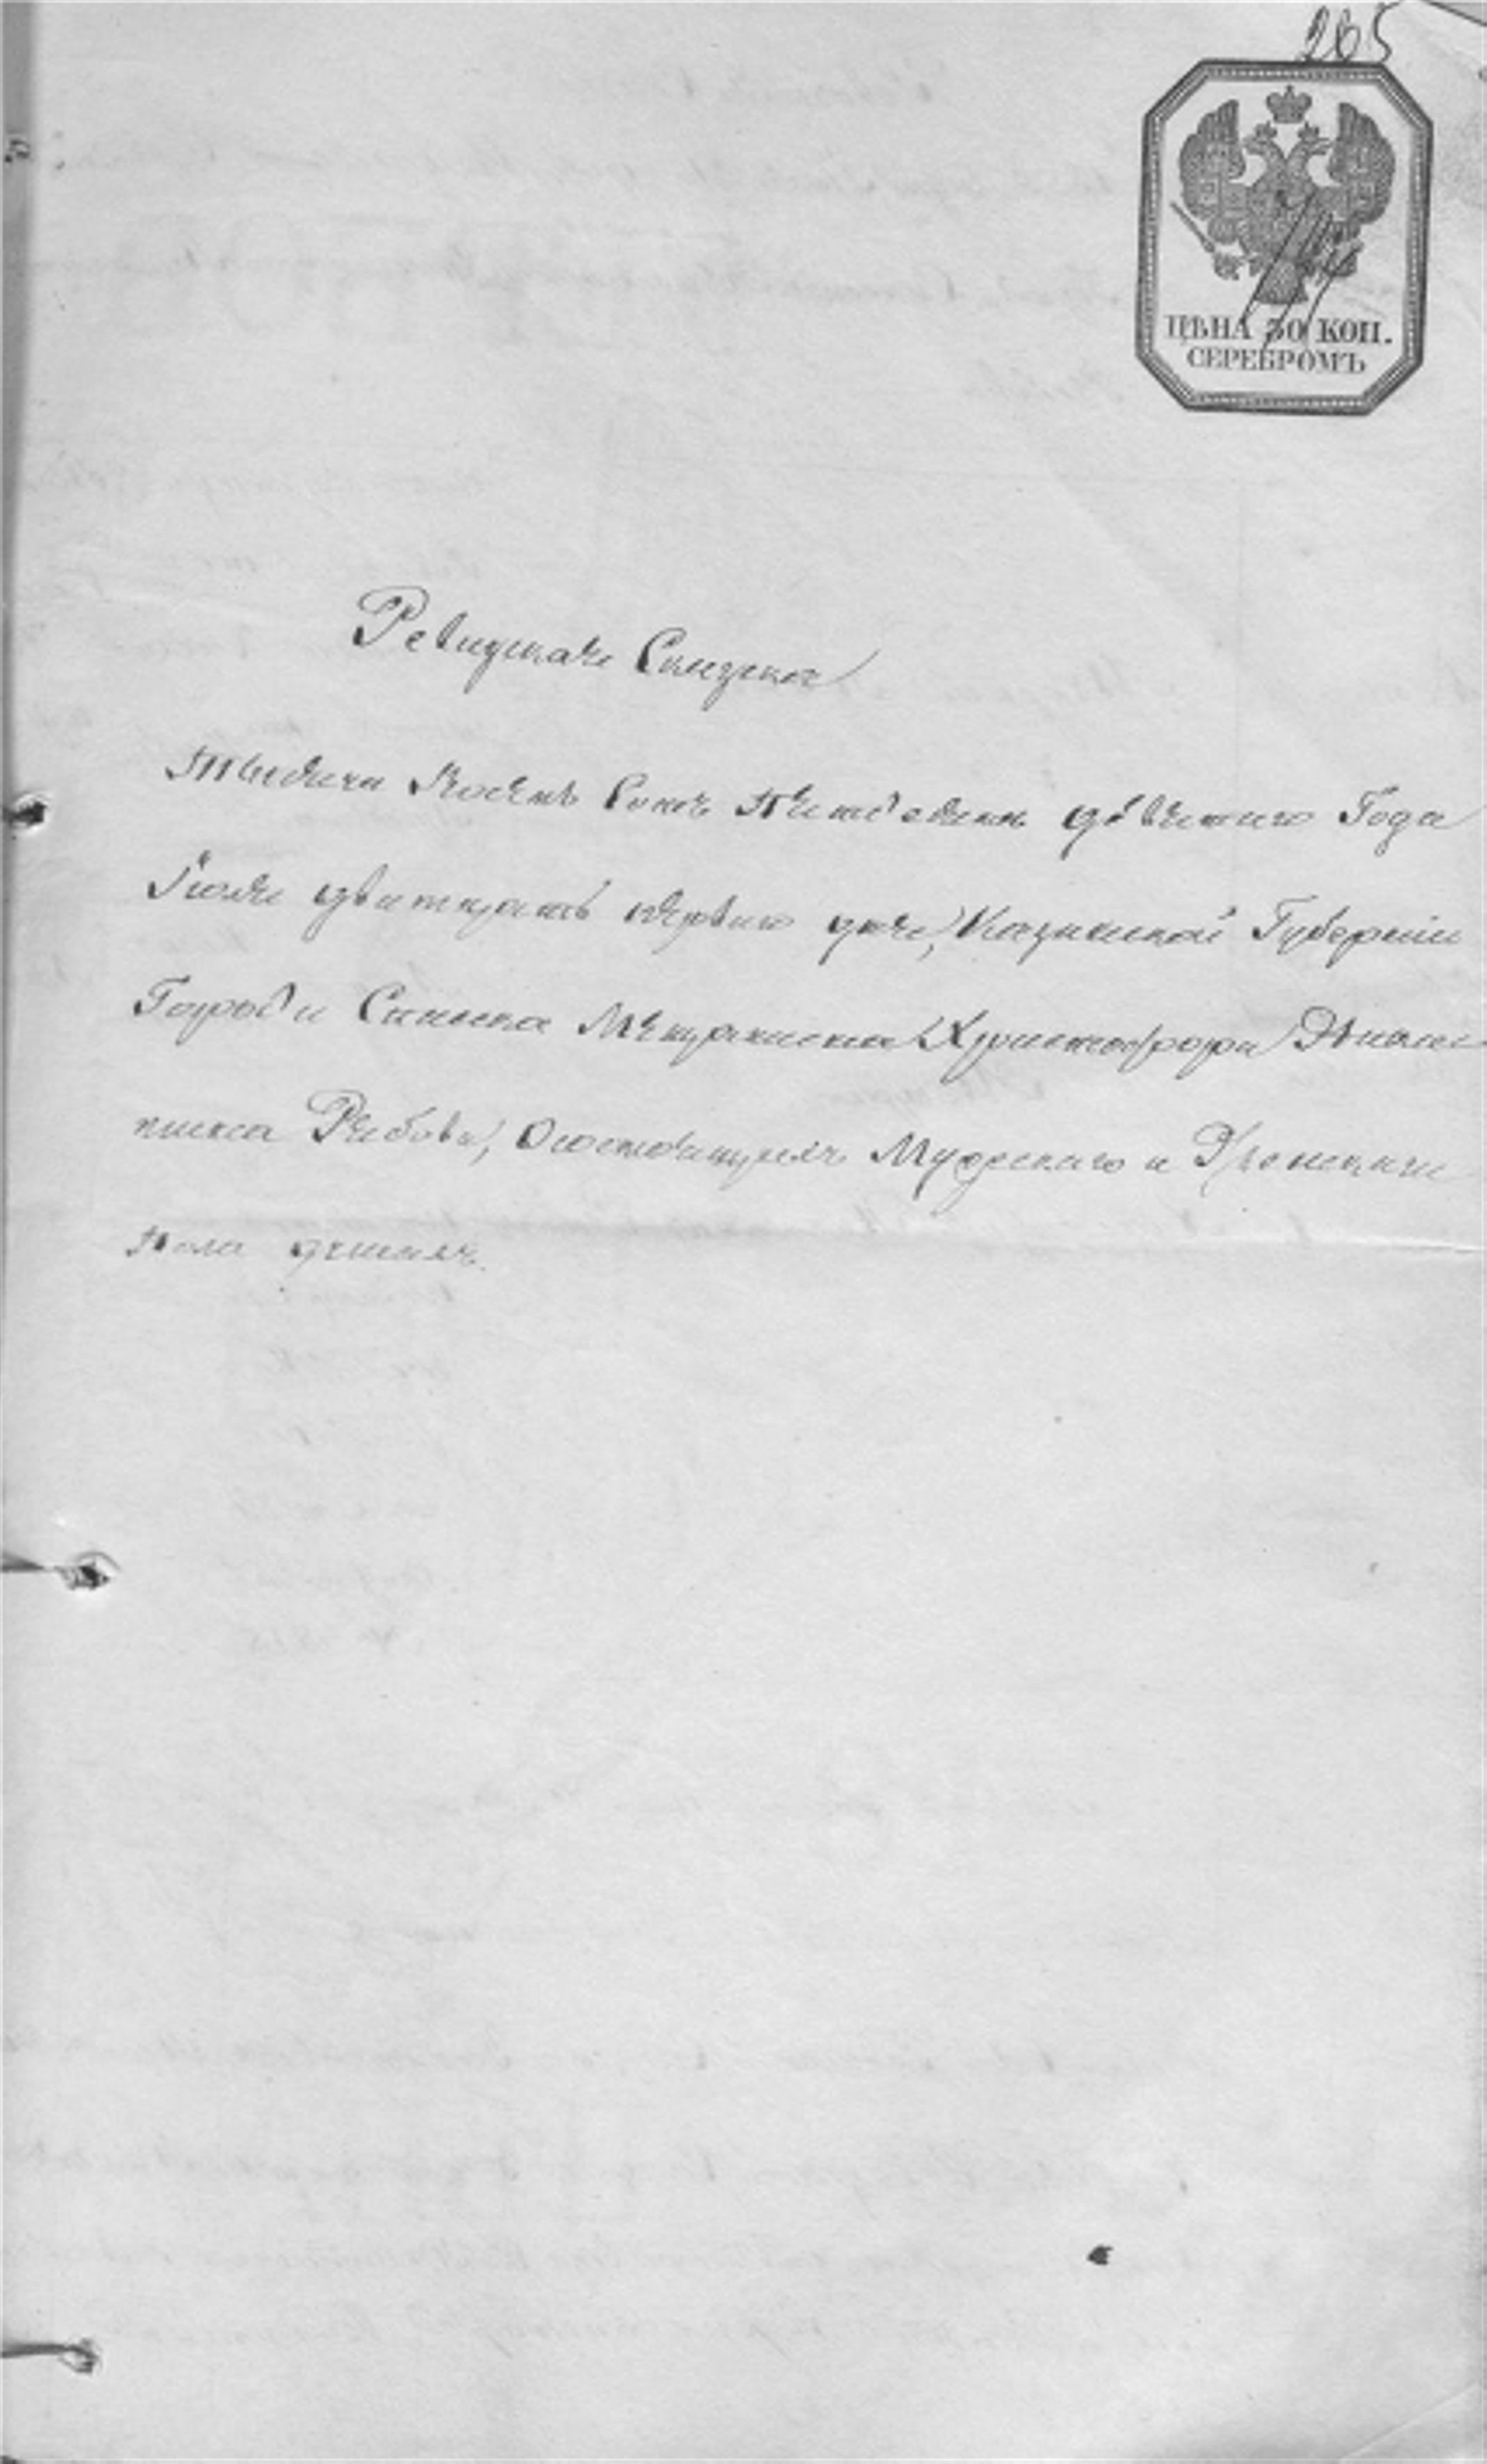 265
ЦѢНА 30 КОП.
СЕРЕБРОМЪ
Ревизская Сказка
Тысеча Восемь Сотъ Петдесят девятаго Года
Июля дватцать перваго дня, Казанской Губернии
Города Спаска Мещанина Христофора
Рябова, О состоящихъ Мужскаго и Женскаго
пола душахъ.